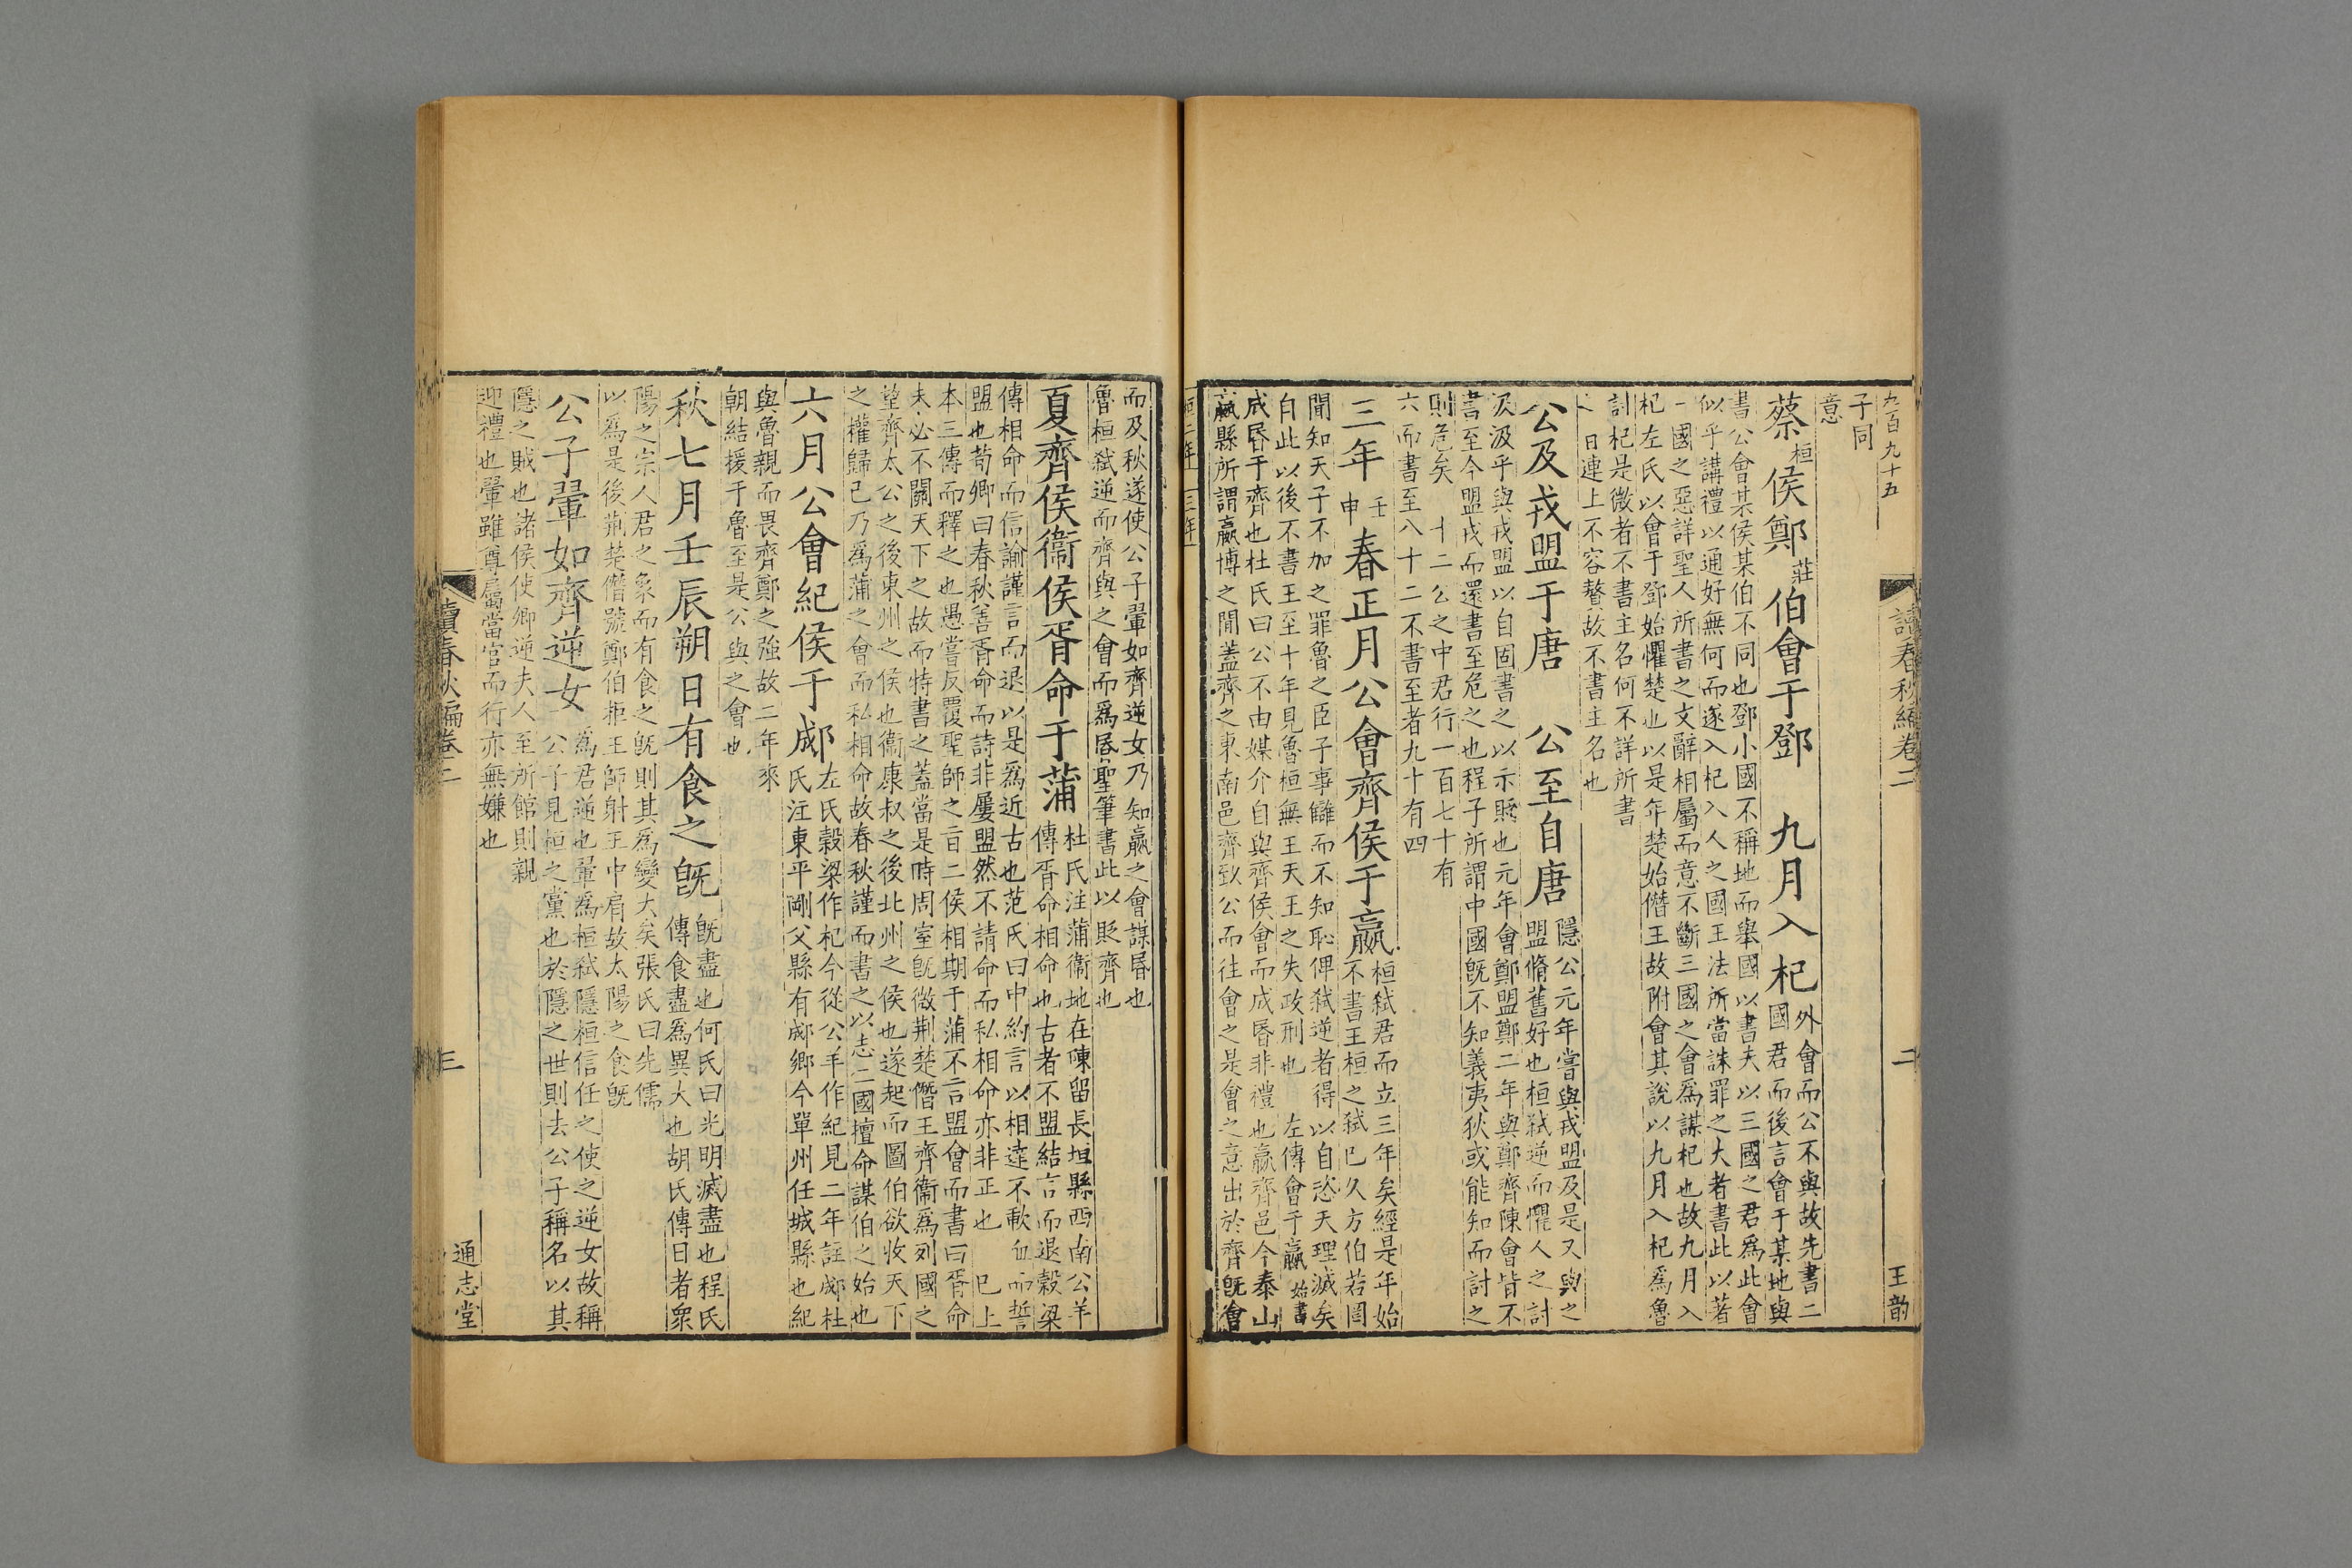 九百九十五
讀春秋編卷二
二
王韵
子同
意
蔡桓侯鄭莊伯會于鄧　九月入杞
外會而公不與故先書二
國君而後言會于某地與
書公會某侯某伯不同也鄧小國不稱地而舉國以書夫以三國之君爲此會
似乎講禮以通好無何而遂入杞入人之國王法所當誅罪之大者書此以著
一國之惡詳聖人所書之文辭相屬而意不斷三國之會爲謀杞也故九月入
杞左氏以會于鄧始懼楚也以是年楚始僭王故附會其說以九月入杞爲魯
討杞是微者不書主名何不詳所書
之日連上不容贅故不書主名也
公及戎盟于唐　公至自唐
隱公元年嘗與戎盟及是又與之
盟脩舊好也桓弒逆而懼人之討
汲汲乎與戎盟以自固書之以示貶也元年會鄭盟鄭二年與鄭齊陳會皆不
書至今盟戎而還書至危之也程子所謂中國旣不知義夷狄或能知而討之
則危矣　十二公之中君行一百七十有
六而書至八十二不書至者九十有四
三年壬申春正月公會齊侯于嬴
桓弒君而立三年矣經是年始
不書王桓之弒已久方伯若罔
聞知天子不加之罪魯之臣子事讎而不知恥俾弒逆者得以自恣天理滅矣
自此以後不書王至十年見魯桓無王天王之失政刑也　左傳會于嬴始書
成昏于齊也杜氏曰公不由媒介自與齊侯會而成昏非禮也嬴齊邑今泰山
嬴縣所謂嬴博之間蓋齊之東南邑齊致公而往會之是會之意出於齊旣會
桓二年　三年
而及秋遂使公子翬如齊逆女乃知嬴之會謀昏也
魯桓弒逆而齊與之會而爲昏聖筆書此以貶齊也
夏齊侯衞侯胥命于蒲
杜氏注蒲衞地在陳留長垣縣西南公羊
傳胥命相命也古者不盟結言而退穀梁
傳相命而信諭謹言而退以是爲近古也范氏曰中約言以相達不歃血而誓
盟也荀卿曰春秋善胥命而詩非屢盟然不請命而私相命亦非正也　已上
本三傳而釋之也愚嘗反覆聖師之旨二侯相期于蒲不言盟會而書曰胥命
未必不關天下之故而特書之蓋當是時周室旣微荆楚僭王齊衞爲列國之
望齊太公之後東州之侯也衞康叔之後北州之侯也遂起而圖伯欲收天下
之權歸己乃爲蒲之會而私相命故春秋謹而書之以志二國擅命謀伯之始也
六月公會紀侯于郕
左氏穀梁作杞今從公羊作紀見二年註郕杜
氏注東平剛父縣有郕鄉今單州任城縣也紀
與魯親而畏齊鄭之強故二年來
朝結援于魯至是公與之會也
秋七月壬辰朔日有食之旣
旣盡也何氏曰光明滅盡也程氏
傳食盡爲異大也胡氏傳日者衆
陽之宗人君之象而有食之旣則其爲變大矣張氏曰先儒
以爲是後荆楚僭號鄭伯拒王師射王中肩故太陽之食旣
公子翬如齊逆女
爲君逆也翬爲桓弒隱桓信任之使之逆女故稱
公子見桓之黨也於隱之世則去公子稱名以其
隱之賊也諸侯使卿逆夫人至所館則親
迎禮也翬雖尊屬當官而行亦無嫌也
讀春秋編卷二
三
通志堂